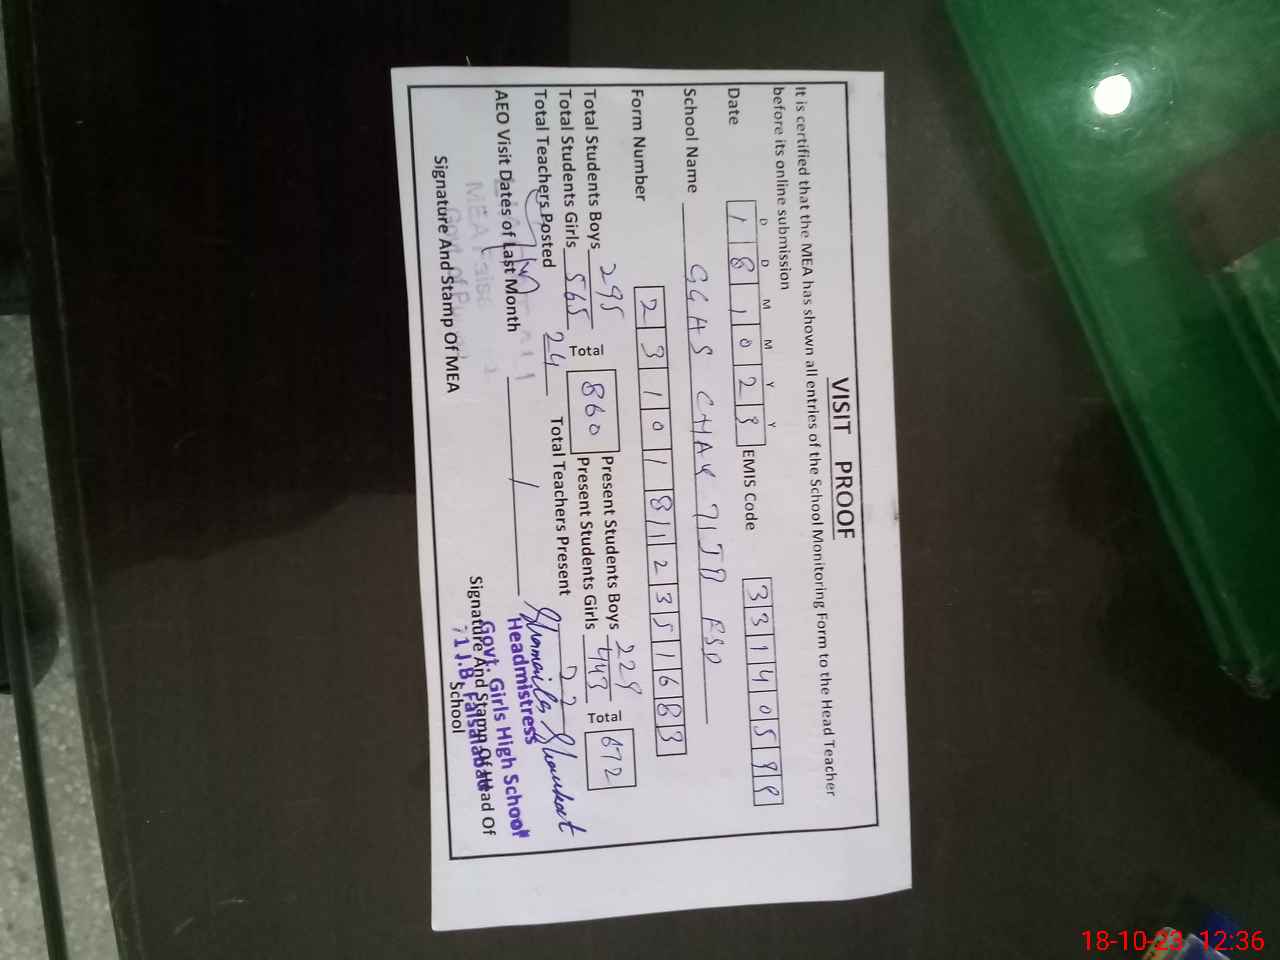 VISIT PROOF
It is certified that the MEA has shown all entries of the School Monitoring Form to the Head Teacher
before its online submission
D D M M Y Y
Date 1 8 1 0 2 3 EMIS Code 3 3 1 4 0 5
School Name CHAK 71 JB FSD
Form Number 2 3 1 0 1 8 1 2 3 5 1 6 8 3
Total Students Boys 295 Total 860 Present Students Boys 229 Total 672
Total Students Girls 565 Present Students Girls 443
Total Teachers Posted 24 Total Teachers Present 22
AEO Visit Dates of Last Month /
Headmistress
Govt. Girls High School
71 J.B. Faisalabad
Signature And Stamp Of MEA
Signature And Stamp Of Head Of School
18-10-23 12:36